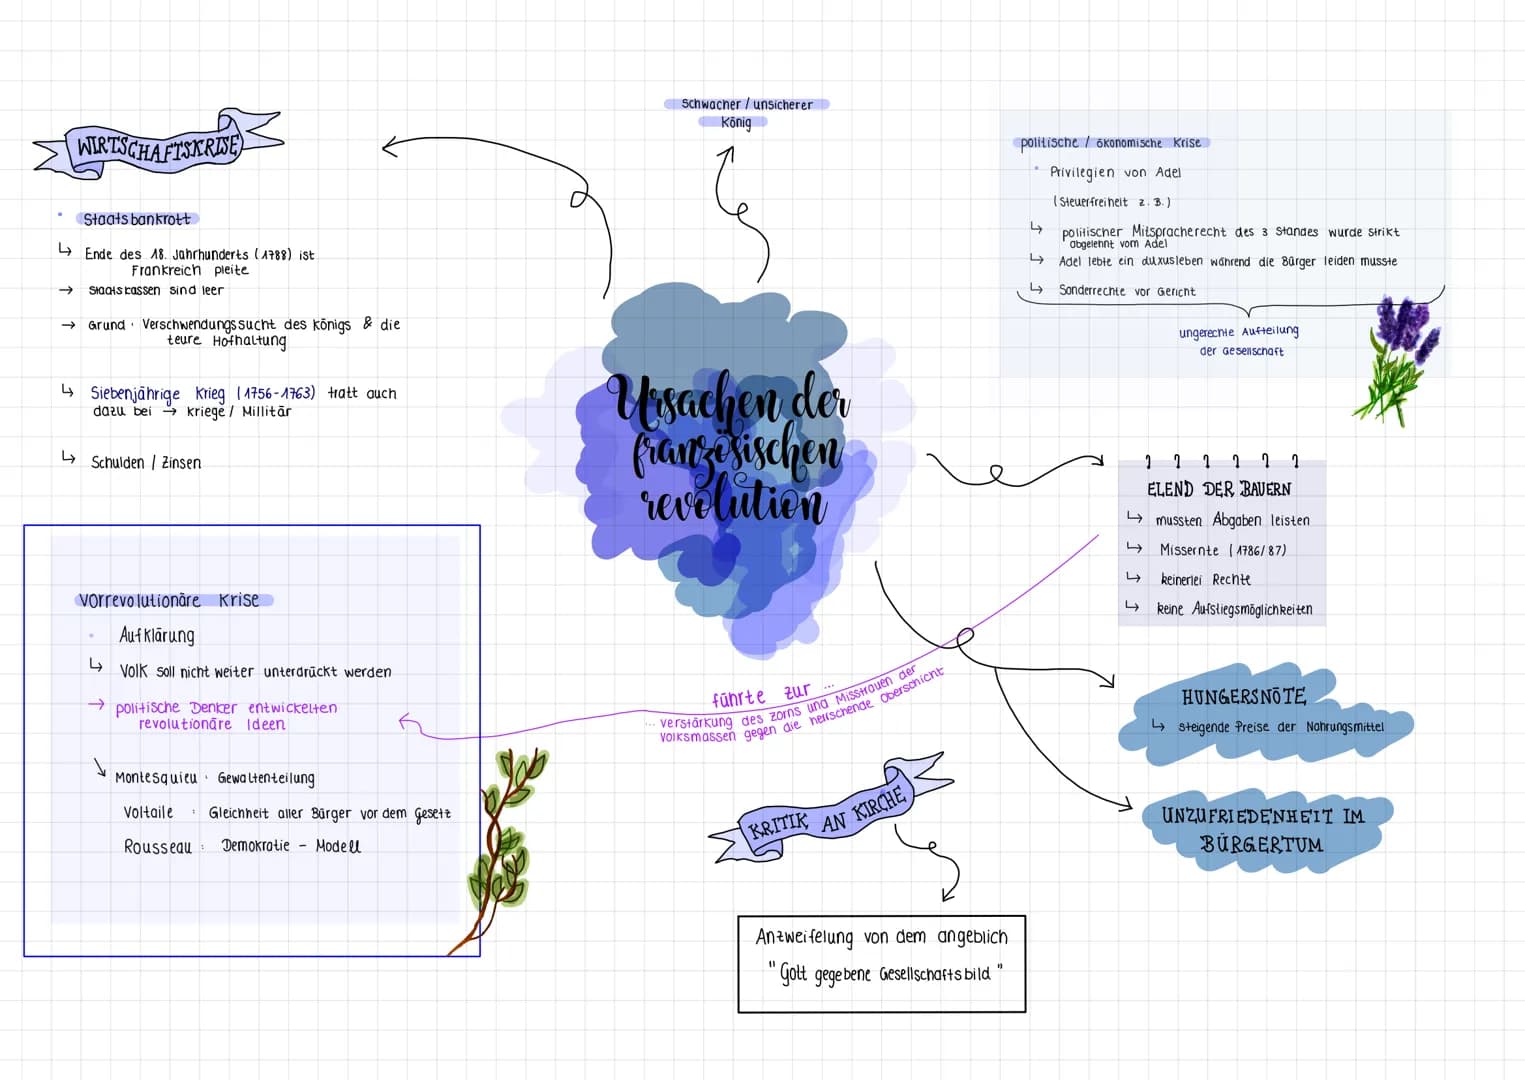 WIRTSCHAFTSKRISE
• Staatsbankrott
↳ Ende des 18. Jahrhunderts (1788) ist
Frankreich pleite
→ Staatskassen sind leer
→ Grund: Verschwendungssucht des Königs & die
teure Hofhaltung
↳ Siebenjährige Krieg (1756-1763) tratt auch
dazu bei → Kriege / Millitär
↳ Schulden / Zinsen
Schwacher / unsicherer
König
politische / ökonomische Krise
• Privilegien von Adel
(Steuerfreiheit z.B.)
↳ politischer Mitspracherecht des 3 Standes wurde strikt
abgelehnt vom Adel
↳ Adel lebte ein Luxusleben während die Bürger leiden musste
↳ Sonderrechte vor Gericht
ungerechte Aufteilung
der Gesellschaft
Ursachen der
französischen
revolution
ELEND DER BAUERN
↳ mussten Abgaben leisten
↳ Missernte (1786/87)
↳ keinerlei Rechte
↳ keine Aufstiegsmöglichkeiten
HUNGERSNÖTE
↳ steigende Preise der Nahrungsmittel
UNZUFRIEDENHEIT IM
BÜRGERTUM
vorrevolutionäre Krise
• Aufklärung
↳ Volk soll nicht weiter unterdrückt werden
→ politische Denker entwickelten
revolutionäre Ideen
↘ Montesquieu: Gewaltenteilung
Voltaile : Gleichheit aller Bürger vor dem Gesetz
Rousseau : Demokratie - Modell
führte zur ...
... verstärkung des zorns und Misstrauen der
Volksmassen gegen die herrschende Oberschicht
KRITIK AN KIRCHE
Anzweifelung von dem angeblich
"Gott gegebene Gesellschaftsbild"